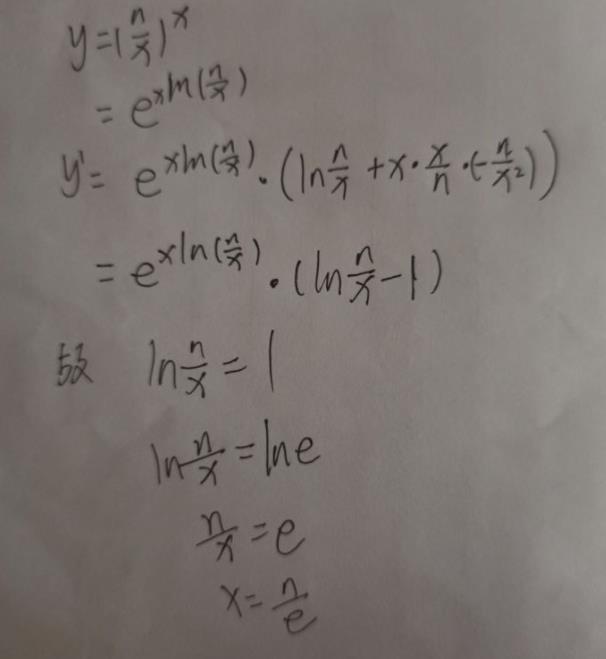 y=(n/x)^x
= e^{xln(n/x)}
y'= e^{xln(n/x)}·(ln n/x +x·x/n·(-n/x²))
= e^{xln(n/x)}·(ln n/x -1)
故 ln n/x = 1
ln n/x = lne
n/x = e
x = n/e